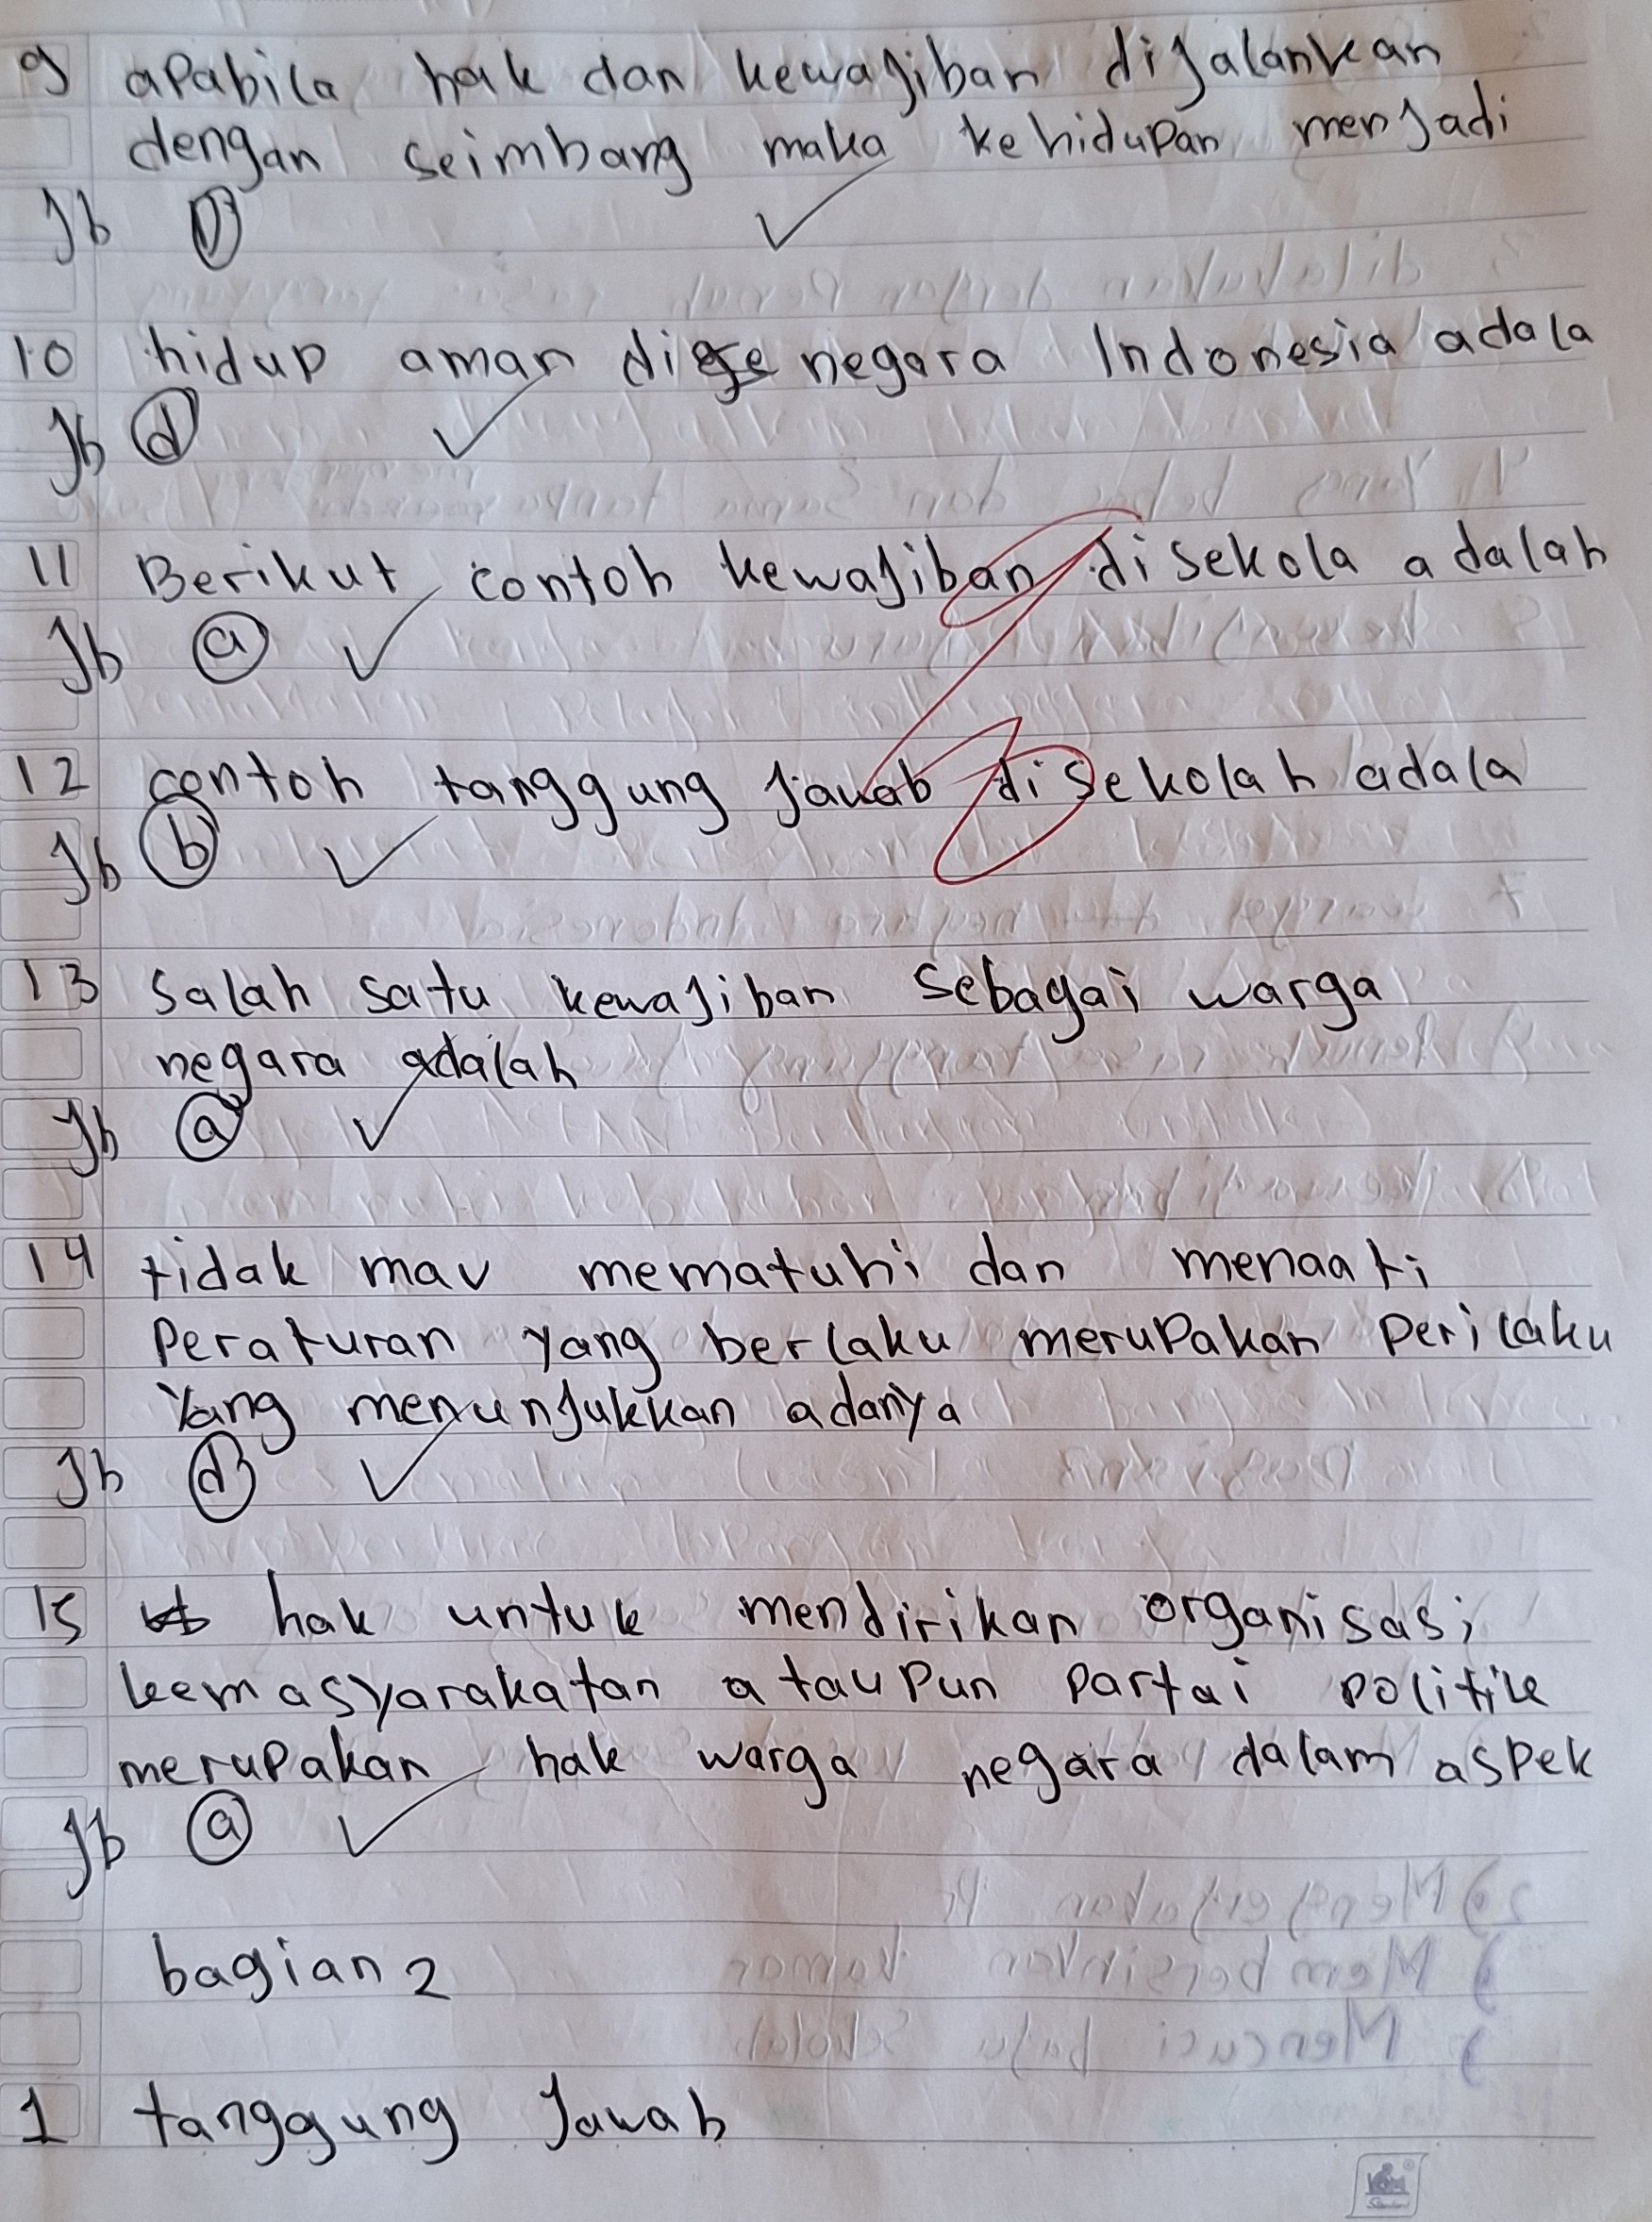 9 apabila hak dan kewajiban dijalankan
dengan seimbang maka kehidupan menjadi
Jb
10 hidup aman di negara Indonesia adala
Jb d
11 Berikut contoh kewajiban disekola adalah
Jb a
12 contoh tanggung jawab disekolah adala
Jb b
13 Salah satu kewajiban sebagai warga
negara adalah
Jb a
14 tidak mau mematuhi dan menaati
Peraturan yang berlaku merupakan perilaku
Yang menunjukkan adanya
Jb d
15 hak untuk mendirikan organisasi
kemasyarakatan ataupun partai politik
merupakan hak warga negara dalam aspek
Jb a
bagian 2
1 tanggung Jawab